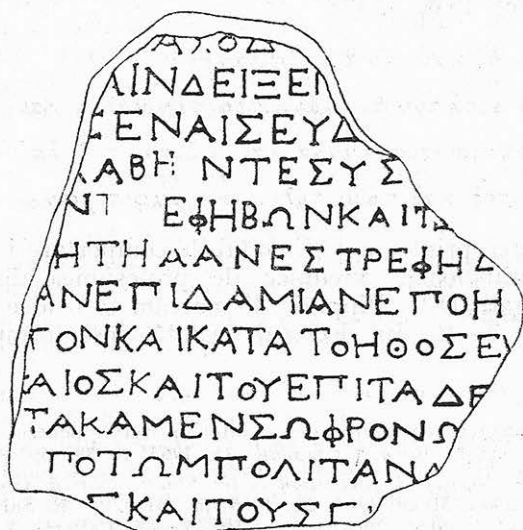 ΑΛΟΔ
ΙΝΔΕΙΞΕΙ
ΕΝΑΙΣΕΥΔ
ΑΒΗ ΝΤΕΣΥΣ
ΝΙ ΕΦΗΒΩΝΚΑΙΤ
ΗΤΗΑΑΝΕΣΤΡΕΦΗΔ
ΑΝΕΠΙΔΑΜΙΑΝΕΠΟΗ
ΓΟΝΚΑΙΚΑΤΑΤΟΗΘΟΣΕΥ
ΑΙΟΣΚΑΙΤΟΥΕΠΙΤΑΔΕ
ΤΑΚΑΜΕΝΣΩΦΡΟΝΩ
ΠΟΤΩΜΠΟΛΙΤΑΝΑ
ΚΑΙΤΟΥΣΓ